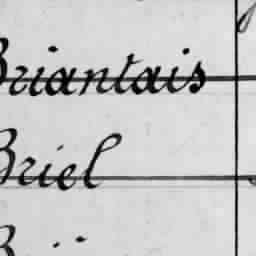 Briantais
Briel